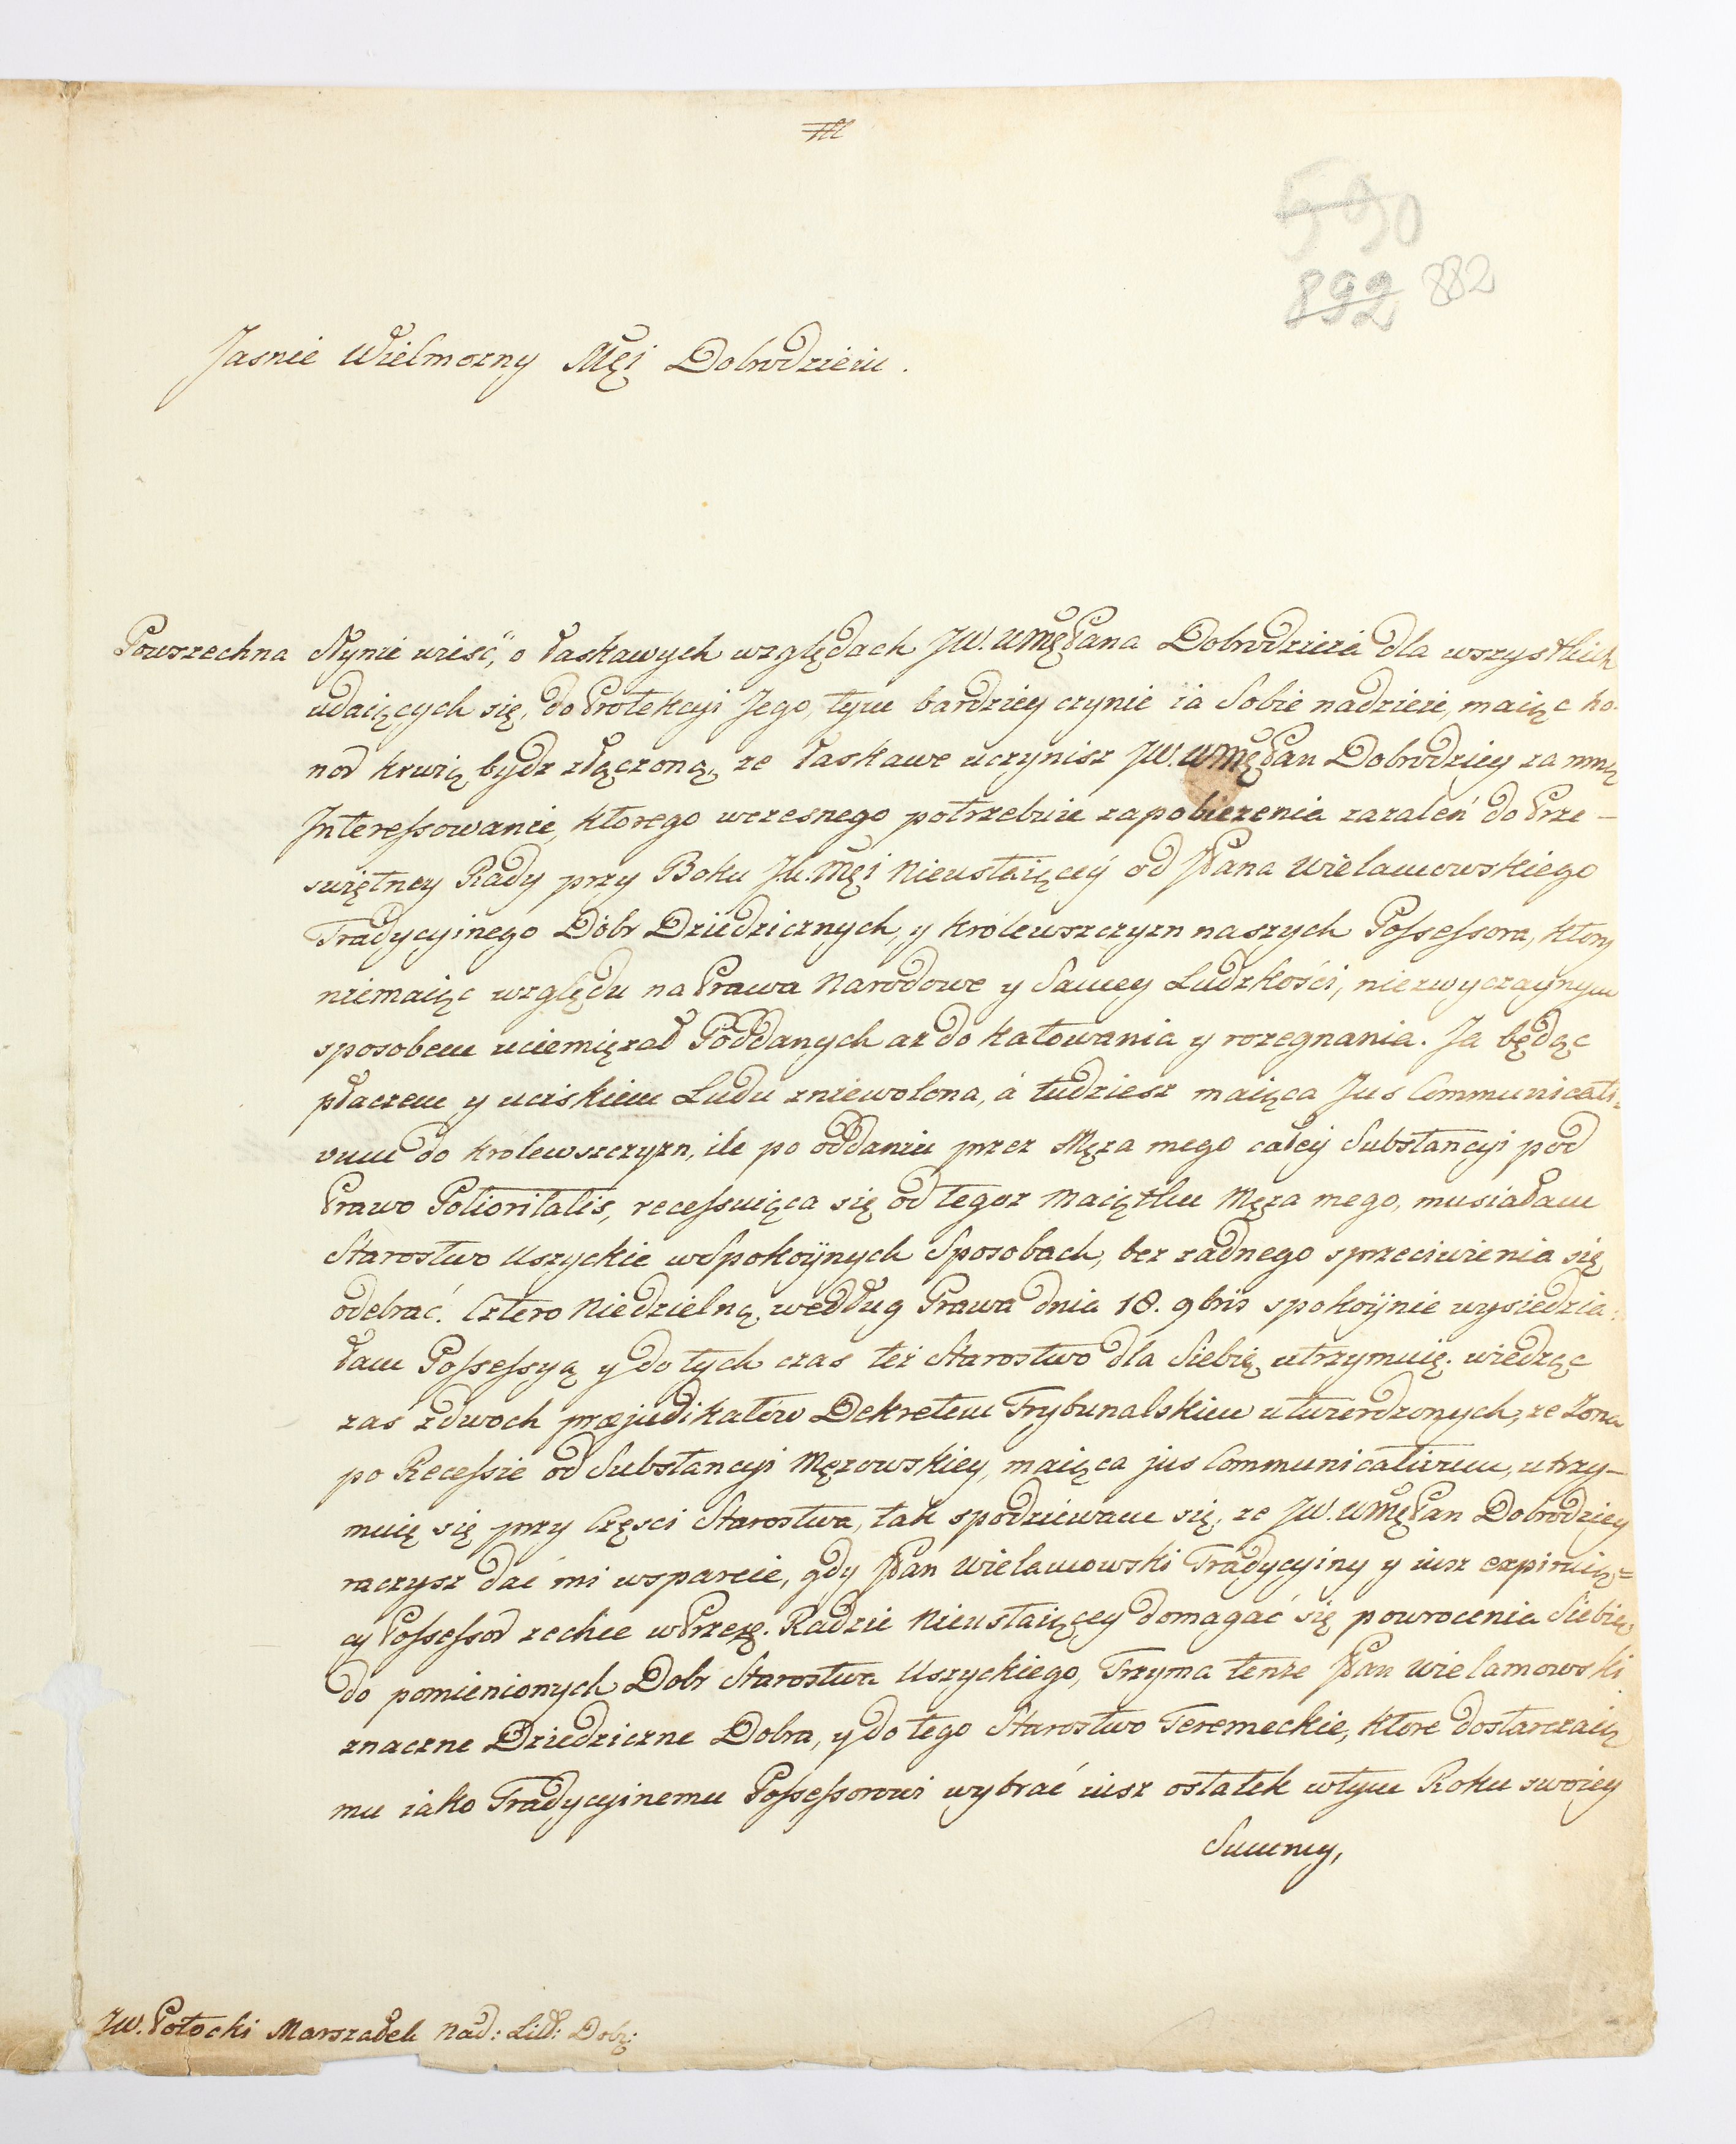 590
892 882
Jasnie Wielmozny Mci Dobrodzieiu.
Powszechna Nynie wieść, o łaskawych względach JW. WMę Pana Dobrodzieia dla wszystkich
udaiących się, do Protekcyi Jego, tym bardziey czynie ia Sobie nadzieie, maiąc ho-
nor krwią bydz złączoną, ze łaskawe uczynisz JW. WMę Pan Dobrodziey za mną
Interessowanie, ktorego wczesnego potrzebuie zapobiezenia zazaleń do Prze-
swiętney Rady przy Boku J.K.Męi Nieustaiącey od JPana Wielamowskiego
Tradycyinego Dóbr Dziedzicznych, y krolewszczyzn naszych Possessora, ktory
niemaiąc względu na Prawa Narodowe y Samey Ludzkości, niezwyczaynym
sposobem uciemięzał Poddanych az do katowania y rozegnania. Ja będąc
płaczem y uciskiem Ludu zniewolona, á tudziesz maiąca Jus Communicati-
vum do krolewszczyzn, ile po oddaniu przez Męza mego całey Substancyi pod
Prawo Potioritatis, recessuiąca się od tegoz Maiątku Męza mego, musiałam
Starostwo Uszyckie w Spokoynych Sposobach, bez zadnego sprzeciwienia się
odebrać. Cztero Niedzielną, według Prawa dnia 18. 9bris spokoynie wysiedzia-
łam Possessyą y do tych czas też Starostwo dla Siebię utrzymuię. wiedząc
zas z dwoch præjudikatów Dekretem Trybunalskim utwierdzonych, ze Zona
po Recessie od Substancyi Męzowskiey, maiąca jus Communicativum, utrzy-
muię się przy Części Starostwa, tak spodziewam się, ze JW. WMę Pan Dobrodziey
raczysz dać mi wsparcie, gdy JPan Wielamowski Tradycyiny y iusz expiruią=
cy Possessor zechce w Prześ. Radzie Nieustaiącey domagać się powrocenia Siebię
do pomienionych Dobr Starostwa Uszyckiego, Trzyma tenze JPan Wielamowski
znaczne Dziedziczne Dobra, y do tego Starostwo Teremeckie, ktore dostarczaią
mu iako Tradycyinemu Possessorowi wybrać iusz ostatek w tym Roku swoiey
Summy,
JW. Potocki Marszałek Nad: Lit: Dobr: